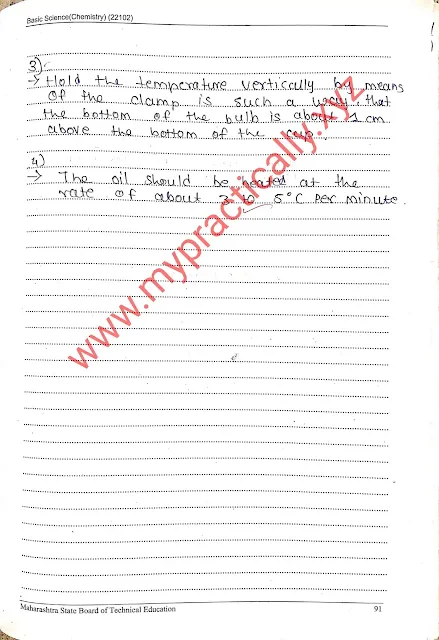 Basic Science(Chemistry) (22102)
3)
→ Hold the temperature vertically by means
of the clamp is such a way that
the bottom of the bulb is about 1 cm
above the bottom of the cup.
4)
→ The oil should be heated at the
rate of about 3 to 5°C per minute.
www.mypractically.xyz
Maharashtra State Board of Technical Education 91